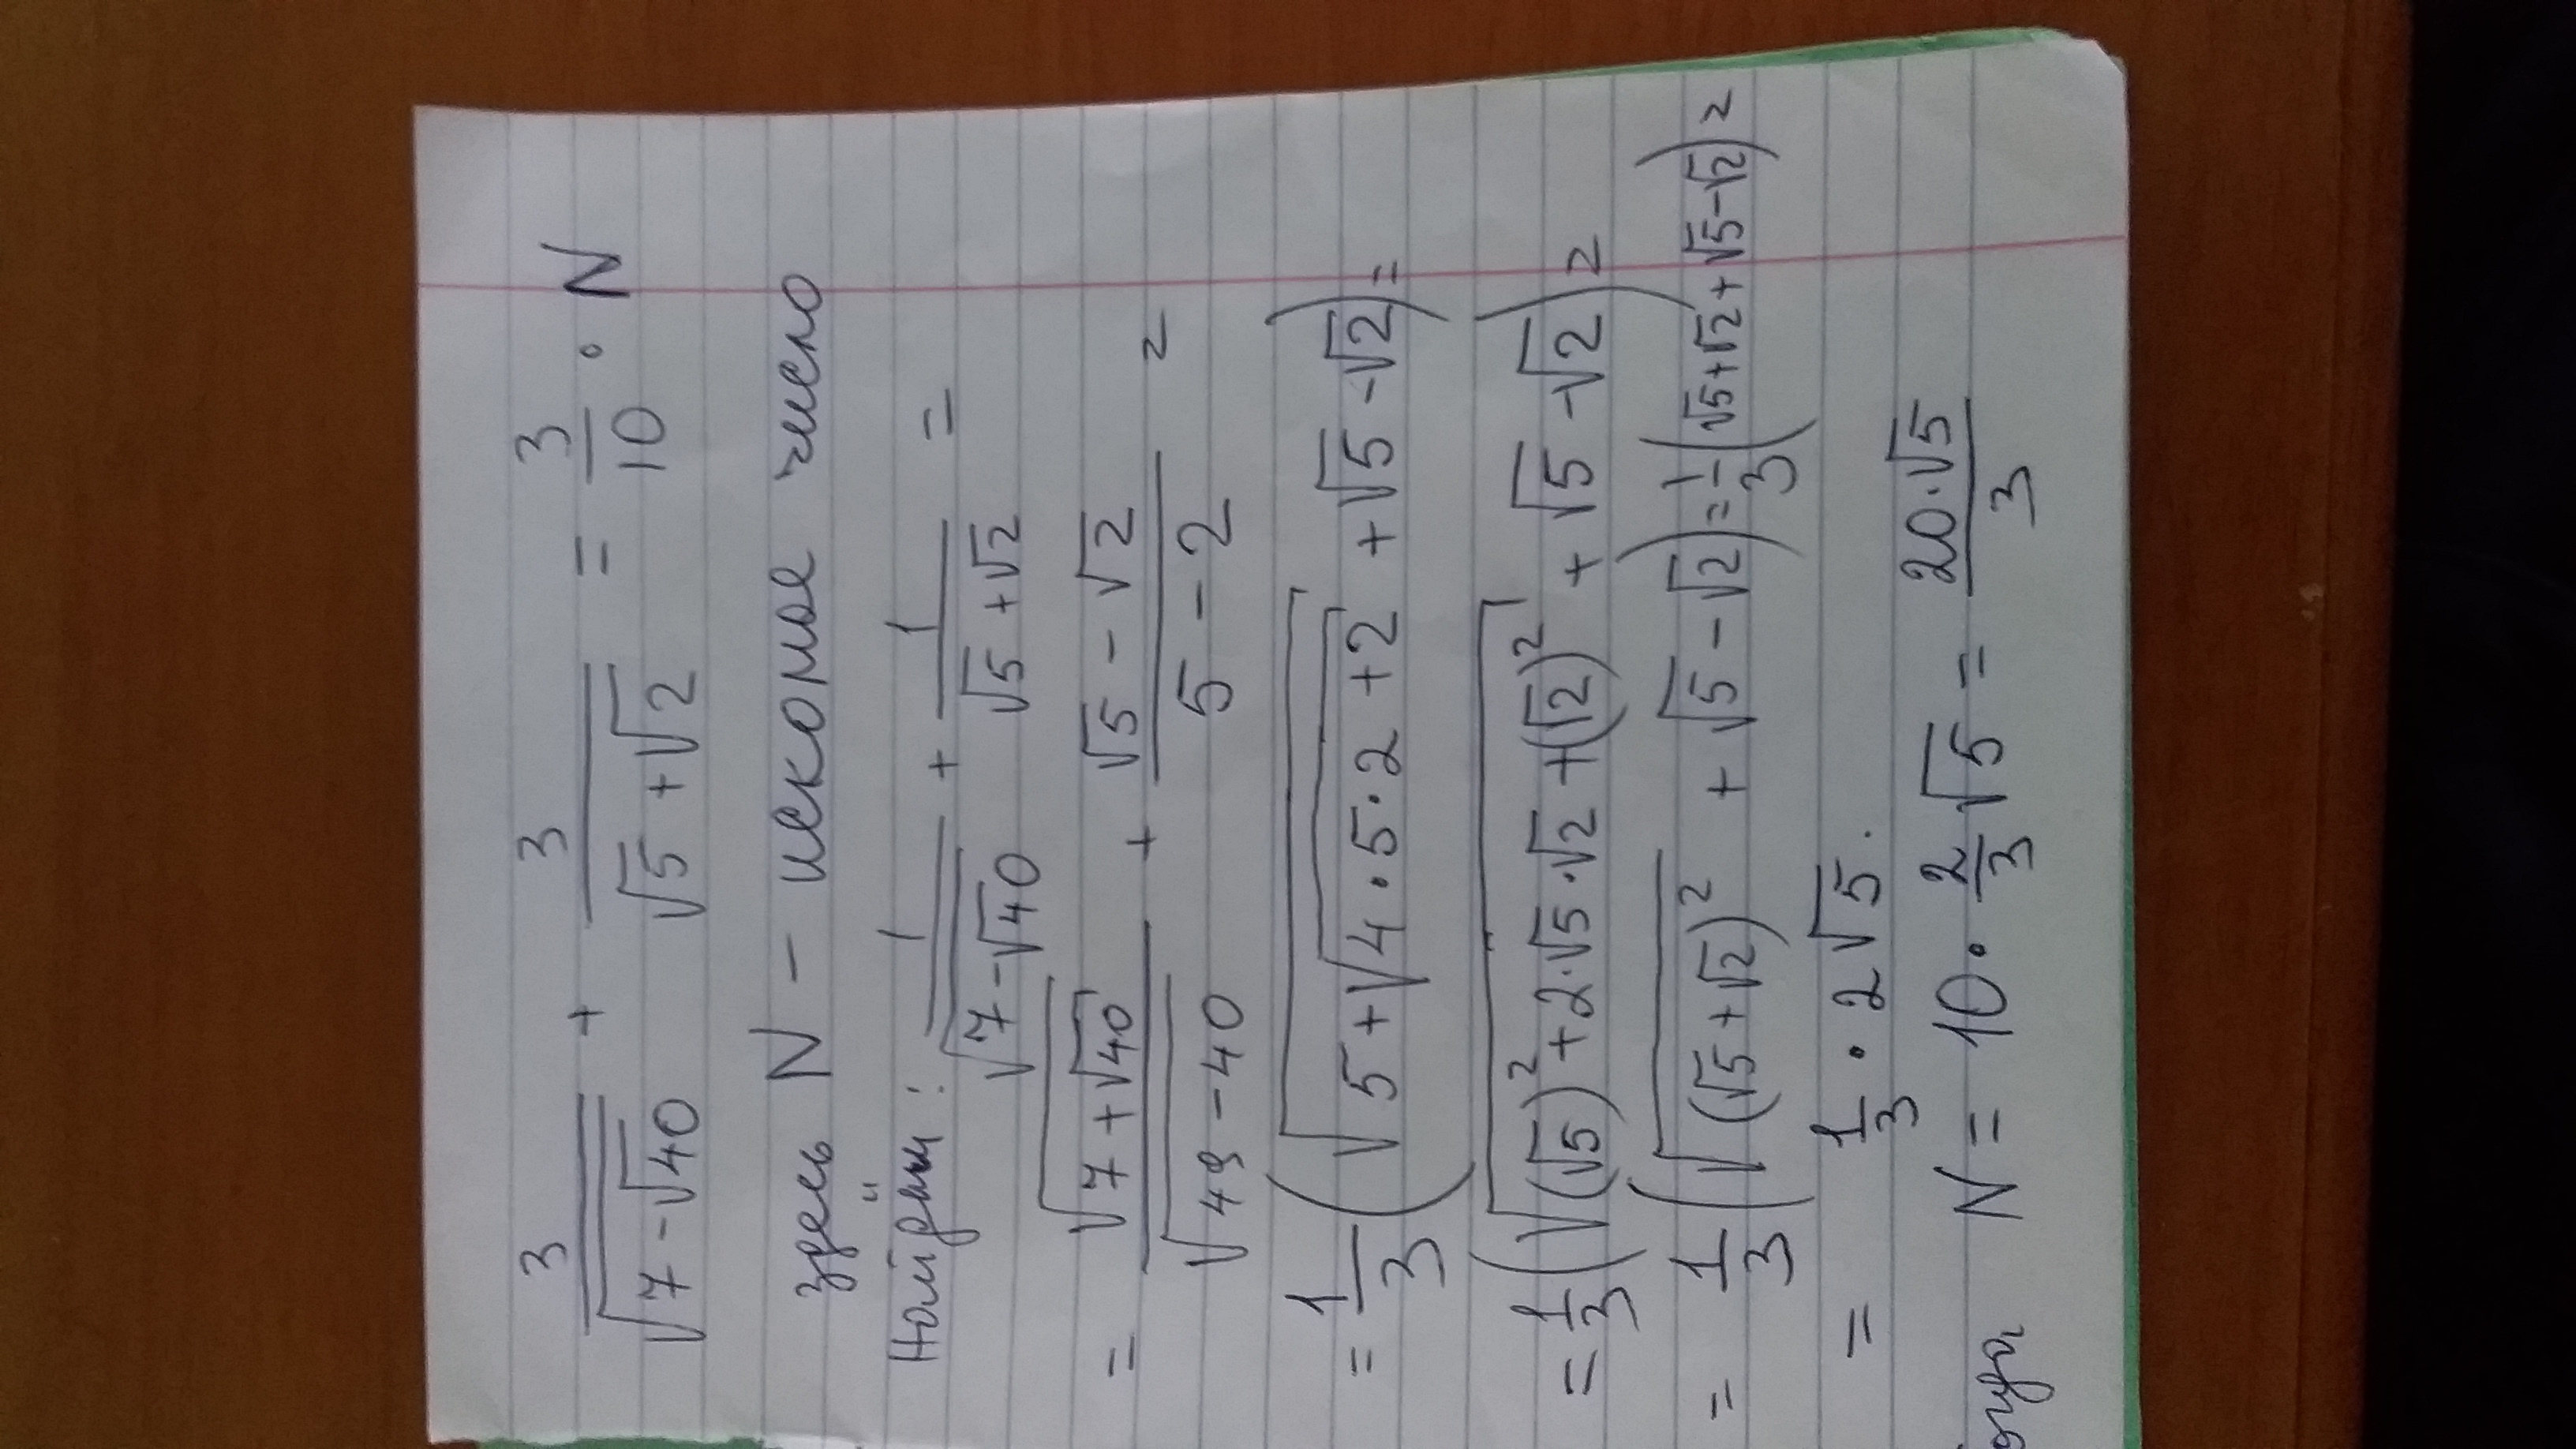 3/√(7-√40) + 3/(√5+√2) = 3/10 · N
здесь N - искомое число
Найдем: 1/√(7-√40) + 1/(√5+√2) =
= √(7+√40)/√(49-40) + (√5-√2)/(5-2) =
= 1/3 (√(5+√(4·5·2)+2) + √5-√2) =
= 1/3 (√((√5)²+2·√5·√2+(√2)²) + √5-√2) =
= 1/3 (√((√5+√2)²) + √5-√2) = 1/3 (√5+√2+√5-√2) =
= 1/3 · 2√5.
N = 10 · 2/3 √5 = 20·√5/3